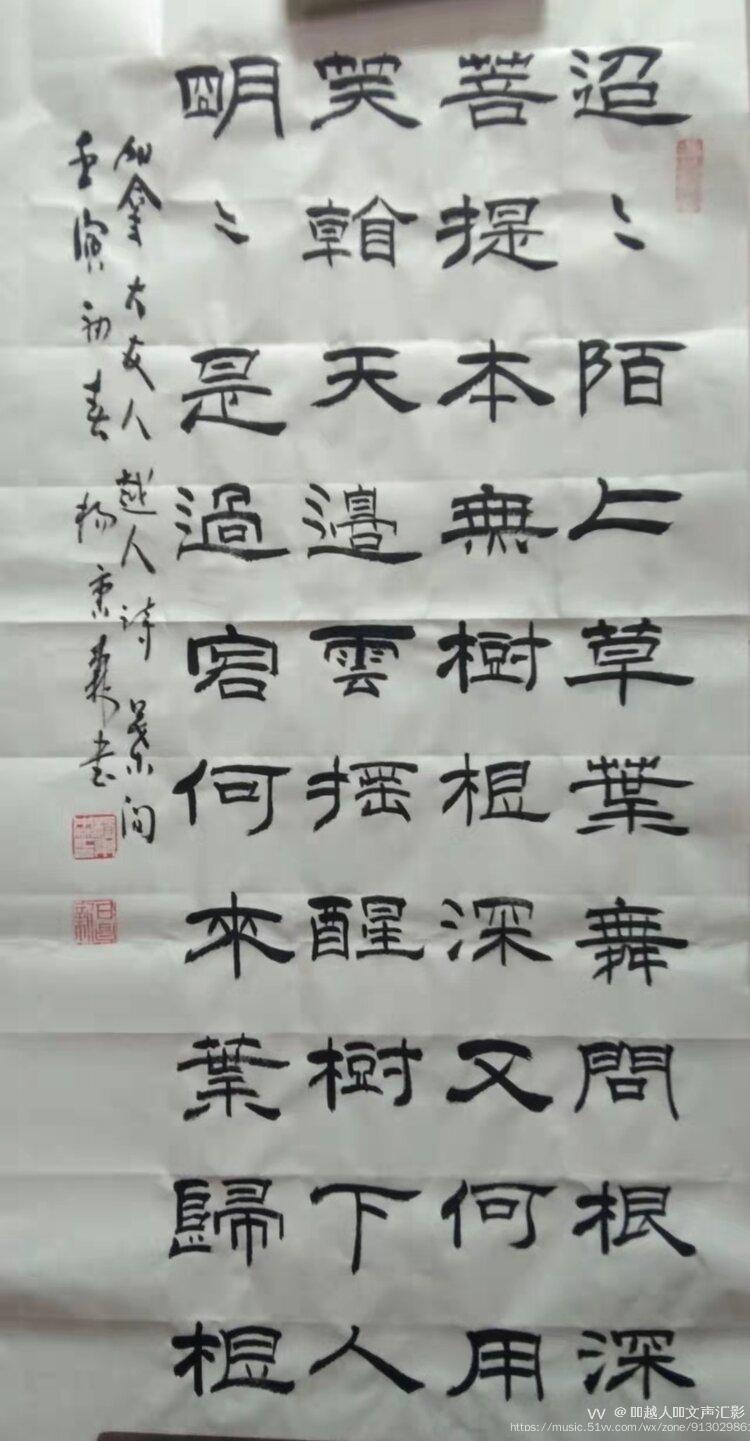 迢〻陌上草葉舞問根深
菩提本無樹根深又何用
笑看天邊雲摇醒樹下人
明〻是過客何來葉歸根
大友人越人诗葉问
壬寅初春 杨秉书
VV @吅越人吅文声汇影
https://music.51vv.com/wx/zone/91302986